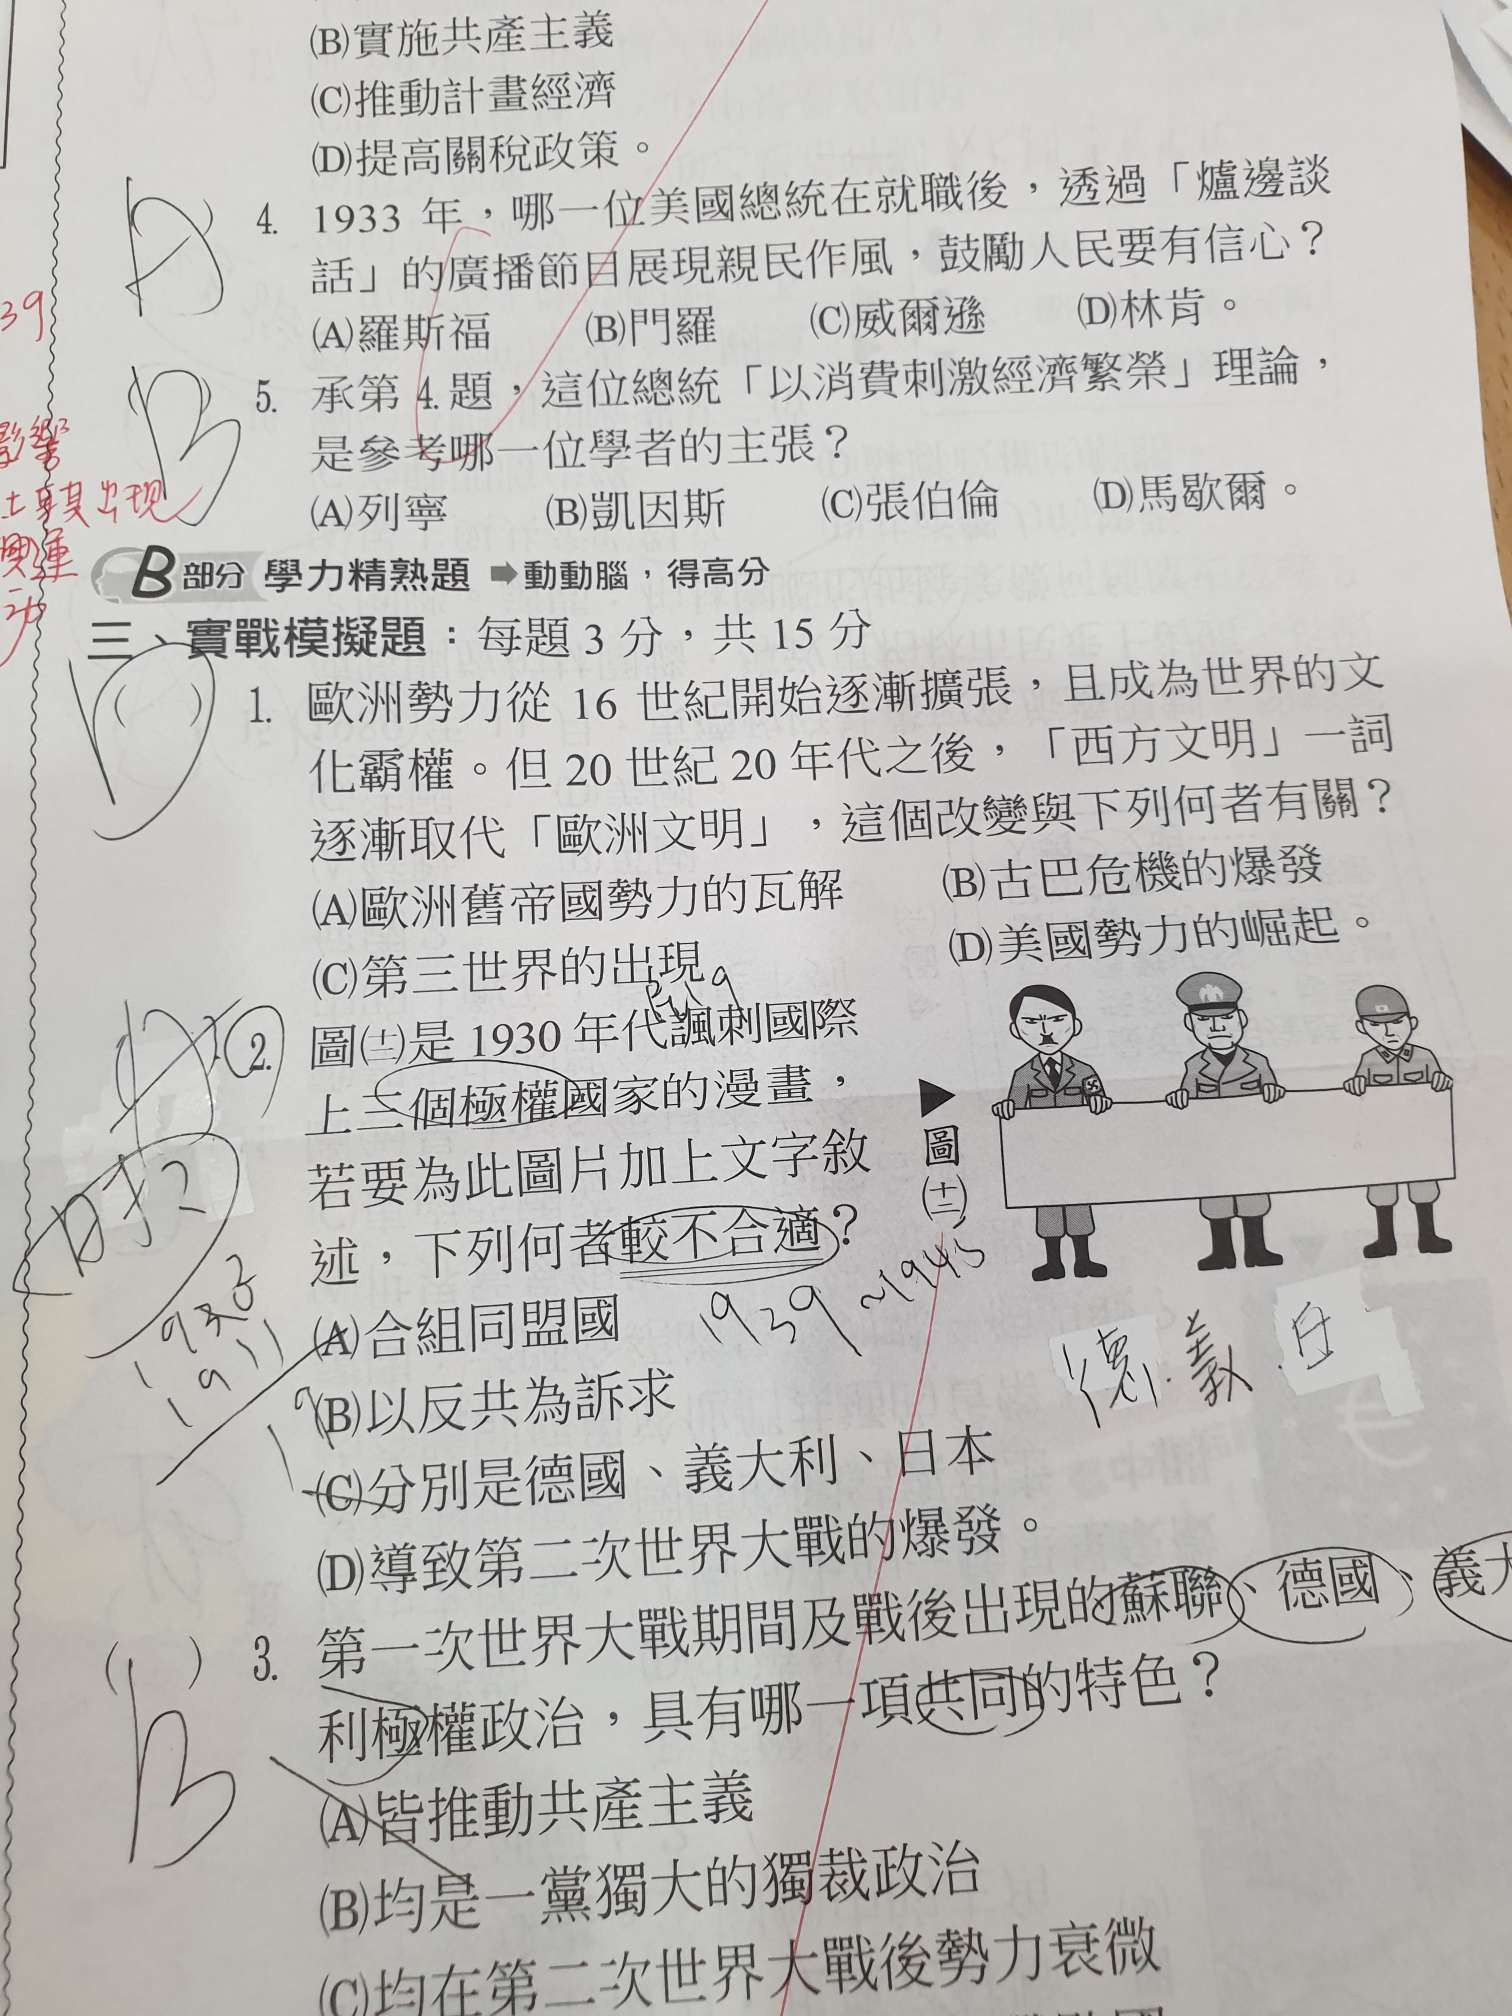 (B)實施共產主義
(C)推動計畫經濟
(D)提高關稅政策。
A
4. 1933 年，哪一位美國總統在就職後，透過「爐邊談
話」的廣播節目展現親民作風，鼓勵人民要有信心？
(A)羅斯福 (B)門羅 (C)威爾遜 (D)林肯。
39
B
5. 承第 4.題，這位總統「以消費刺激經濟繁榮」理論，
是參考哪一位學者的主張？
(A)列寧 (B)凱因斯 (C)張伯倫 (D)馬歇爾。
影響
出現
運
動
B 部分 學力精熟題 ➡動動腦，得高分
三、實戰模擬題：每題 3 分，共 15 分
D
( ) 1. 歐洲勢力從 16 世紀開始逐漸擴張，且成為世界的文
化霸權。但 20 世紀 20 年代之後，「西方文明」一詞
逐漸取代「歐洲文明」，這個改變與下列何者有關？
(A)歐洲舊帝國勢力的瓦解 (B)古巴危機的爆發
(C)第三世界的出現 (D)美國勢力的崛起。
A
2. 圖(十二)是 1930 年代諷刺國際
上三個極權國家的漫畫，
若要為此圖片加上文字敘
述，下列何者較不合適？
▶圖(十二)
(A)合組同盟國
1939~1945
1911
德.義.日
(B)以反共為訴求
(C)分別是德國、義大利、日本
(D)導致第二次世界大戰的爆發。
( ) 3. 第一次世界大戰期間及戰後出現的蘇聯、德國、義大
利極權政治，具有哪一項共同的特色？
B
(A)皆推動共產主義
(B)均是一黨獨大的獨裁政治
(C)均在第二次世界大戰後勢力衰微